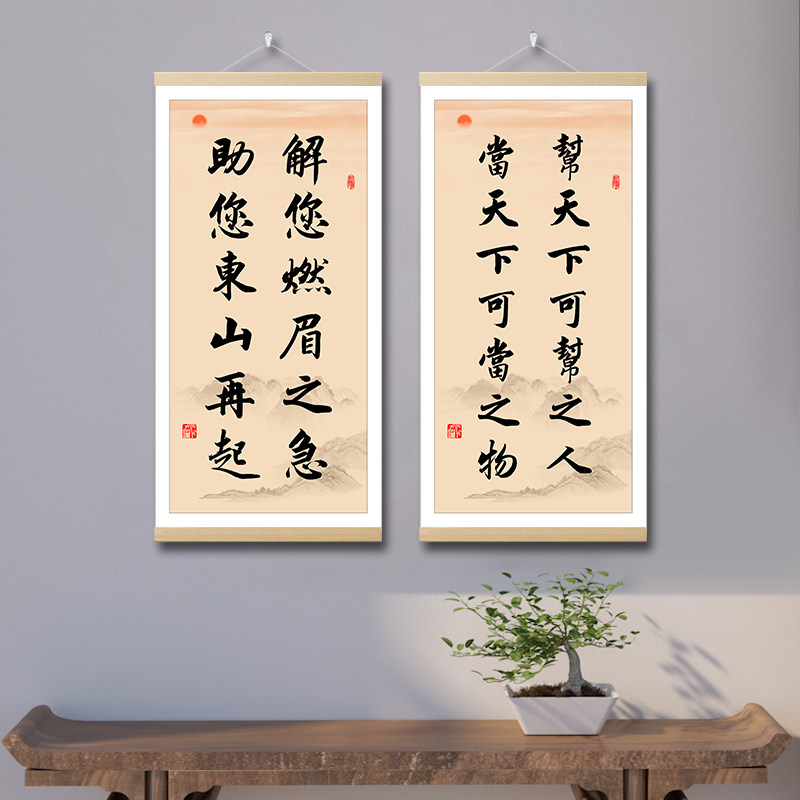 幫天下可幫之人
當天下可當之物
解您燃眉之急
助您東山再起